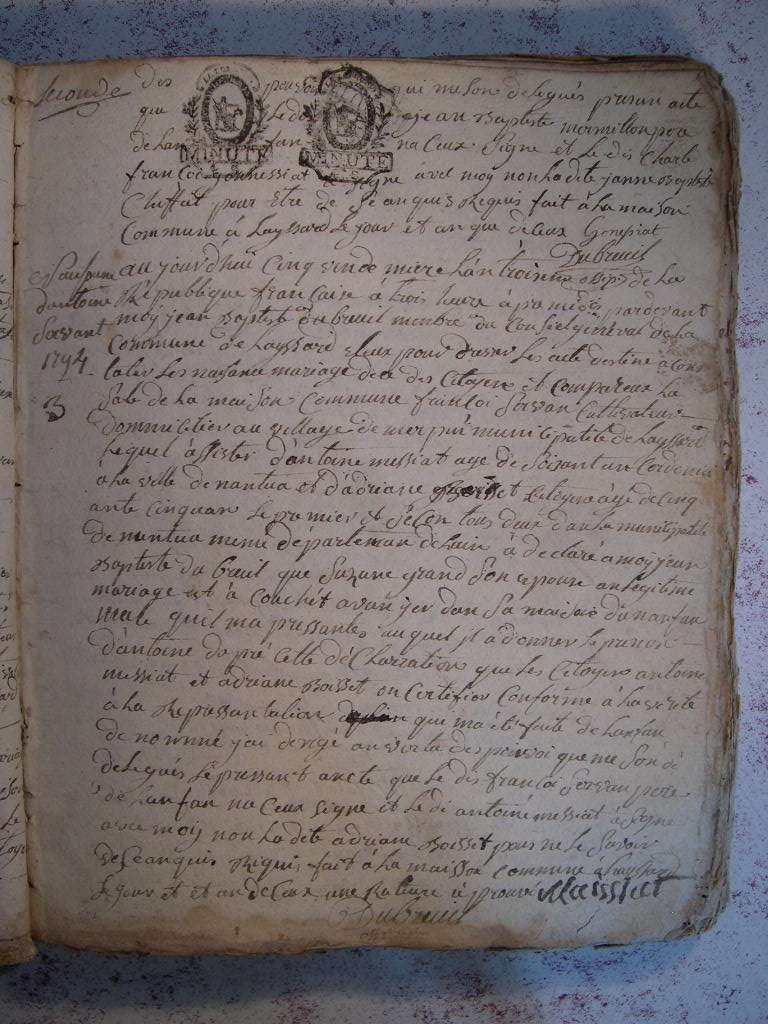 seconde des pouvoir qui me son delegués presen acte
que Le di jean Baptiste mermillon pere
de Lanfan na Ceux Signe et Le dis Charle
MINUTE MINUTE
françoi gonnessiat a Signe avec moy non La dite janne Baptiste
pour Etre de Se anquis Requis fait à La maison
Commune à Layssard Le jour et an que deCeux Gonessiat
Dubreuil
Naissance
dantoine
Servant
1794
3
aujourdhui Cinq vende miere Lan troisieme de La
République francaise à trois heure à pre midi pardevant
moy jean Baptiste dubreuil menbre du Conseil général de La
Commune de Layssard Eleux pour dresser Les acte destine à Cons
tater Les naisance mariage de ce des Citoyen et Compareux La
Sale de La maison Commune françoi Servan Cultivateur
dommicilier au village de merpui municipatité de Layssard
Lequel assister d'antoine messiat age de Soisant un Cordonie
à La ville de nantua et d'adriane Boisset Citoyene agé de Cinq
ante Cinquan Le premier et Segon tous deux dan La municipatite
de nantua meme departeman de Lain à declaré a moy jean
Baptiste du breuil que Suzane grand Son epouse an Legitime
mariage est a Couchét avan yer dan Sa maison d'un anfan
male quil ma pressantés auquel jl à donner Le prenon
d'antoine da pré Cette déClaration que Les Citoyens antoine
messiat et adriane Boisset on Certifier Conforme à La verite
à La Repressantation qui ma été faite de Lanfan
de nommé jai dergé an vertu des pouvoi que me Son dé
delegués Le pressant ancte que Le dis françoi Servan pere
de Lanfan na Ceux Signe et Le di antoine messiat à Signe
avec moy non La dite adriane Boisset pour ne Le Savoir
de Ceanquis Requis fait à La maison Commune à Layssard
Le jour et et an de Ceux une Rature à prouvé Massiat
Dubreuil